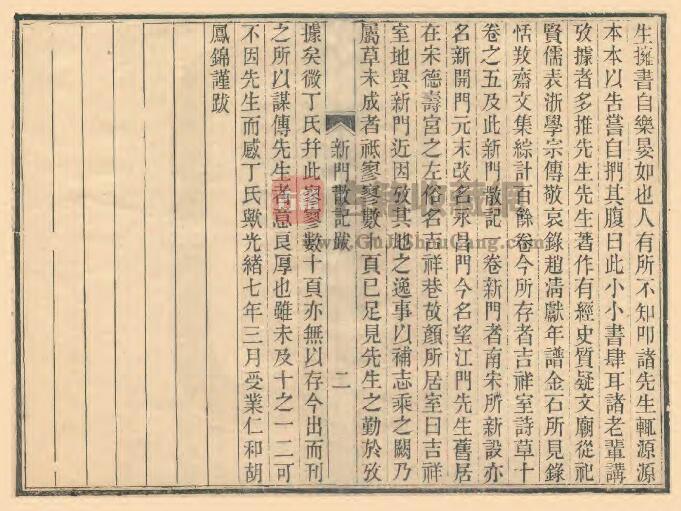 生擁書自樂晏如也人有所不知叩諸先生輒源源
本本以告嘗自捫其腹曰此小小書肆耳諸老輩講
攷據者多推先生先生著作有經史質疑文廟從祀
賢儒表浙學宗傳敬哀錄趙淸獻年譜金石所見錄
恬敉齋文集綜計百餘卷今所存者吉祥室詩草十
卷之五及此新門散記一卷新門者南宋所新設亦
名新開門元末改名永昌門今名望江門先生舊居
在宋德壽宮之左俗名吉祥巷故顏所居室曰吉祥
室地與新門近因攷其地之逸事以補志乘之闕乃
屬草未成者祇寥寥數十頁已足見先生之勤於攷
新門散記 跋 二
據矣微丁氏幷此寥寥數十頁亦無以存今出而刊
之所以謀傳先生者意良厚也雖未及十之一二可
不因先生而感丁氏歟光緒七年三月受業仁和胡
鳳錦謹跋
www.GuJiShouCang.com